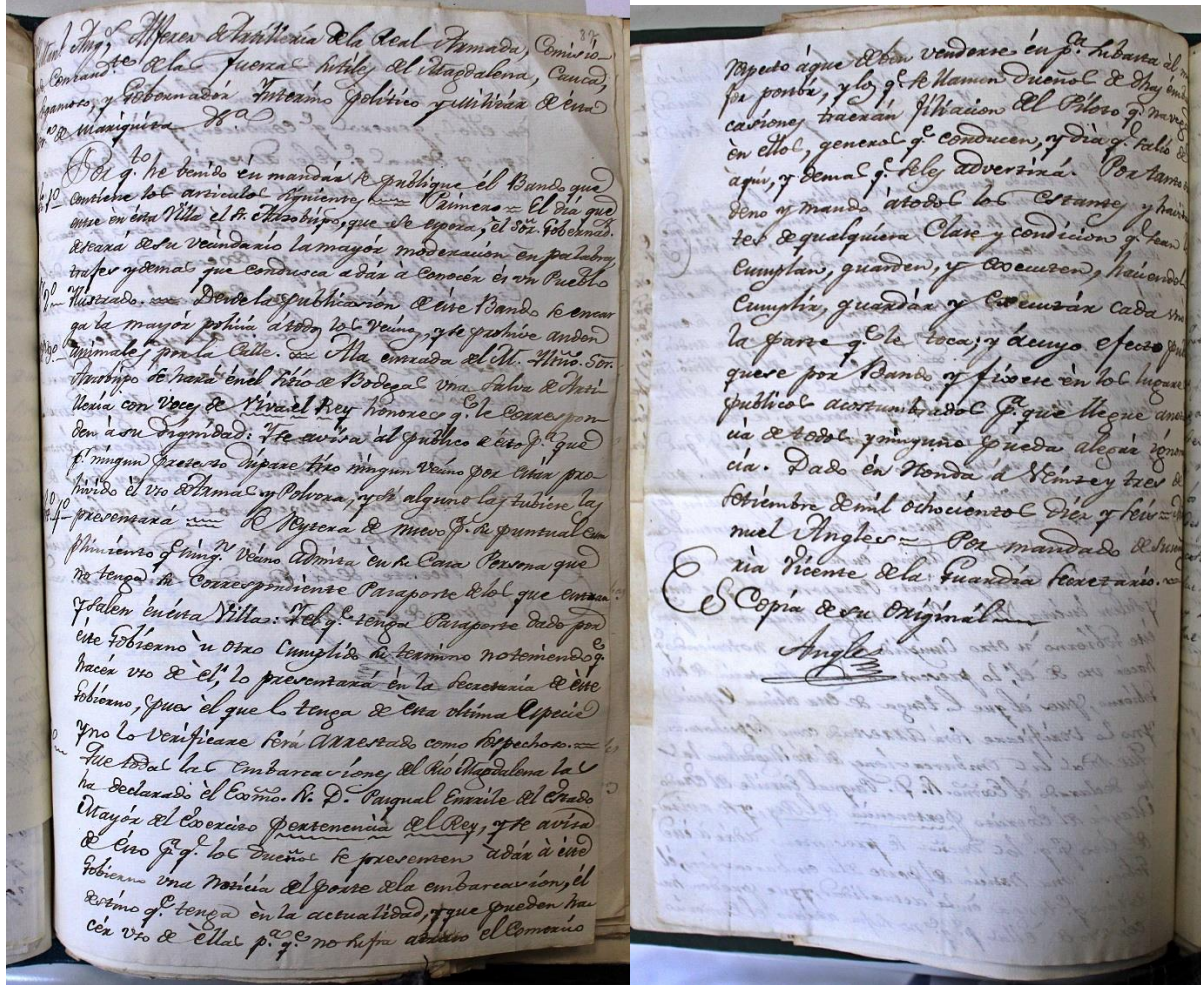 37
Man.l Ang.s Alferez de Artilleria de la Real Armada, Comisio-
Comand.te de las fuerzas sutiles del Magdalena, Cauca,
Sogamoso, y Gobernador Interino politico y Militar de ésta
de Mariquita &a
Por q.to he tenido én mandar se publique él Bando que
1º contiene los articulos siguientes Primero El dia que
entre en ésta Villa el Sr. Arzobispo, que se espera, el Sor. Gobernad.
deseará de su vecindario la mayor moderacion en palabras,
trages y demas que condusca a dár à conocer és un Pueblo
2º Ilustrado. Desde la publicacion de éste Bando se encar
ga la mayor policia à todos los Vecinos, y se prohive anden
3º Animales por la Calle. A la entrada del M. Iltño. Sor.
Arzobispo se hará én él sitio de Bodegas una salva de Arti-
lleria con voces de Viva él Rey honores q.e le correspon
den à su dignidad: Y se avisa al público de ésto p.a que
p.r ningun pretexto dispare tiro ningun Vecino por estár pro
hivido él uso de Armas y Polvora, y si alguno las tubiere las
4º presentará se Reytera de nuevo p.a su puntual cum
plimiento q.e ning.n Vecino admita èn su Casa Persona que
no tenga su correspondiente Pasaporte de los que entran
y salen én ésta Villa: Y el q.e tenga Pasaporte dado por
éste Gobierno ù otro Cumplido su termino no teniendo q.e
hacer uso de él, lo presentará èn la Secretaría de éste
Gobierno, pues èl que lo tenga de ésta ultima especie
y no lo verificare será arrestado como sospechoso.
Que todas las embarcaciones del Rio Magdalena las
ha declarado èl Exmo. S. D. Pasqual Enrile del Estado
Mayor del Exercito pertenencia del Rey, y se avisa
de ésto p.a q.e los Dueños se presenten à dár à éste
Gobierno una noticia del porte de la embarcacion, él
destino q.e tenga èn la actualidad, y que pueden ha-
cér uso de èllas p.a q.e no sufra atraso el Comercio
respecto á que deben venderse én p.ca subasta al m
por ponér, y los q.e se llamen dueños de dhas émb
caciones traerán filiacion del Piloto q.e naveg
èn ellos, generos q.e conducen, y dia q.e salio de
aqui, y demas q.e se les advertirá. Por tanto
deno y mando à todos los estantes y havitan
tes de qualquiera clase y condicion q.e sean
cumplan, guarden, y executen, haciendo
cumplir, guardár y executár cada uno
la parte q.e le toca; y à cuyo efecto publi
quese por Bando y fixese èn los lugares
públicos acostumbrados p.a que llegue à no
cia de todos y ninguno pueda alegár ignoran
cia. Dado én Honda à Veinte y tres de
Setiembre de mil ochocientos diez y seis
nuel Angles = Por mandado de su
ría Vicente de la Guardia Secretario.
Es Copia de su original
Angles